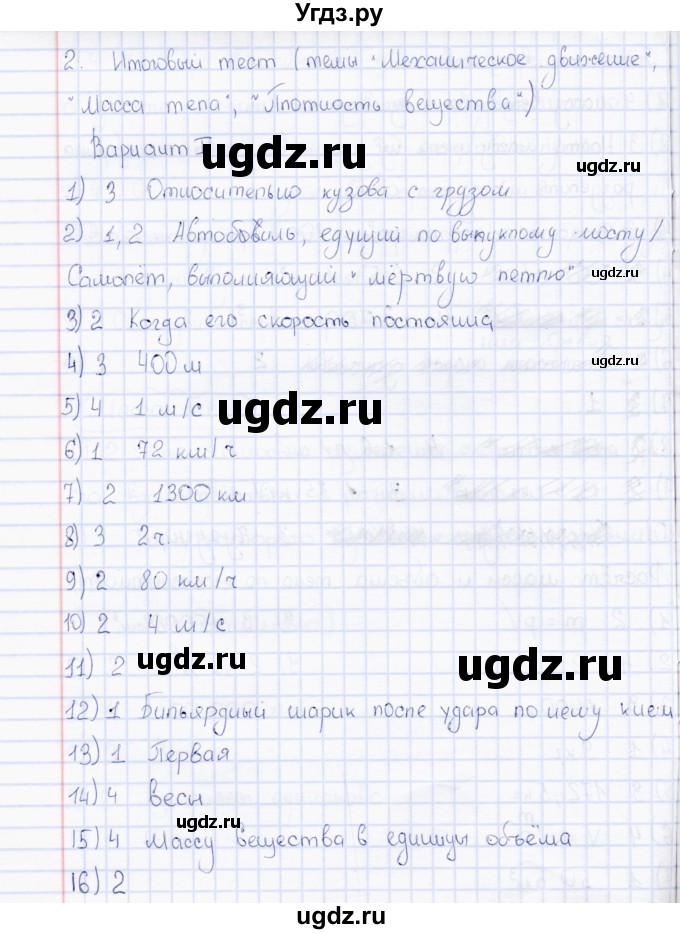 Угдз.ру
2. Итоговый тест (темы "Механическое движение",
"Масса тела", "Плотность вещества")
Вариант I
ugdz.ru
ugdz.ru
1) 3 Относительно кузова с грузом
2) 1,2 Автобовиль, едущий по выпуклому мосту/
Самолёт, выполняющий "мёртвую петлю"
ugdz.ru
3) 2 Когда его скорость постоянна
4) 3 400 м
ugdz.ru
5) 4 1 м/с
ugdz.ru
ugdz.ru
6) 1 72 км/ч
7) 2 1300 км
8) 3 2ч.
9) 2 80 км/ч
10) 2 4 м/с
11) 2
ugdz.ru
ugdz.ru
12) 1 Бильярдный шарик после удара по нему кием
13) 1 Первая
14) 4 весы
ugdz.ru
15) 4 Массу вещества в единицы объёма
16) 2
ugdz.ru